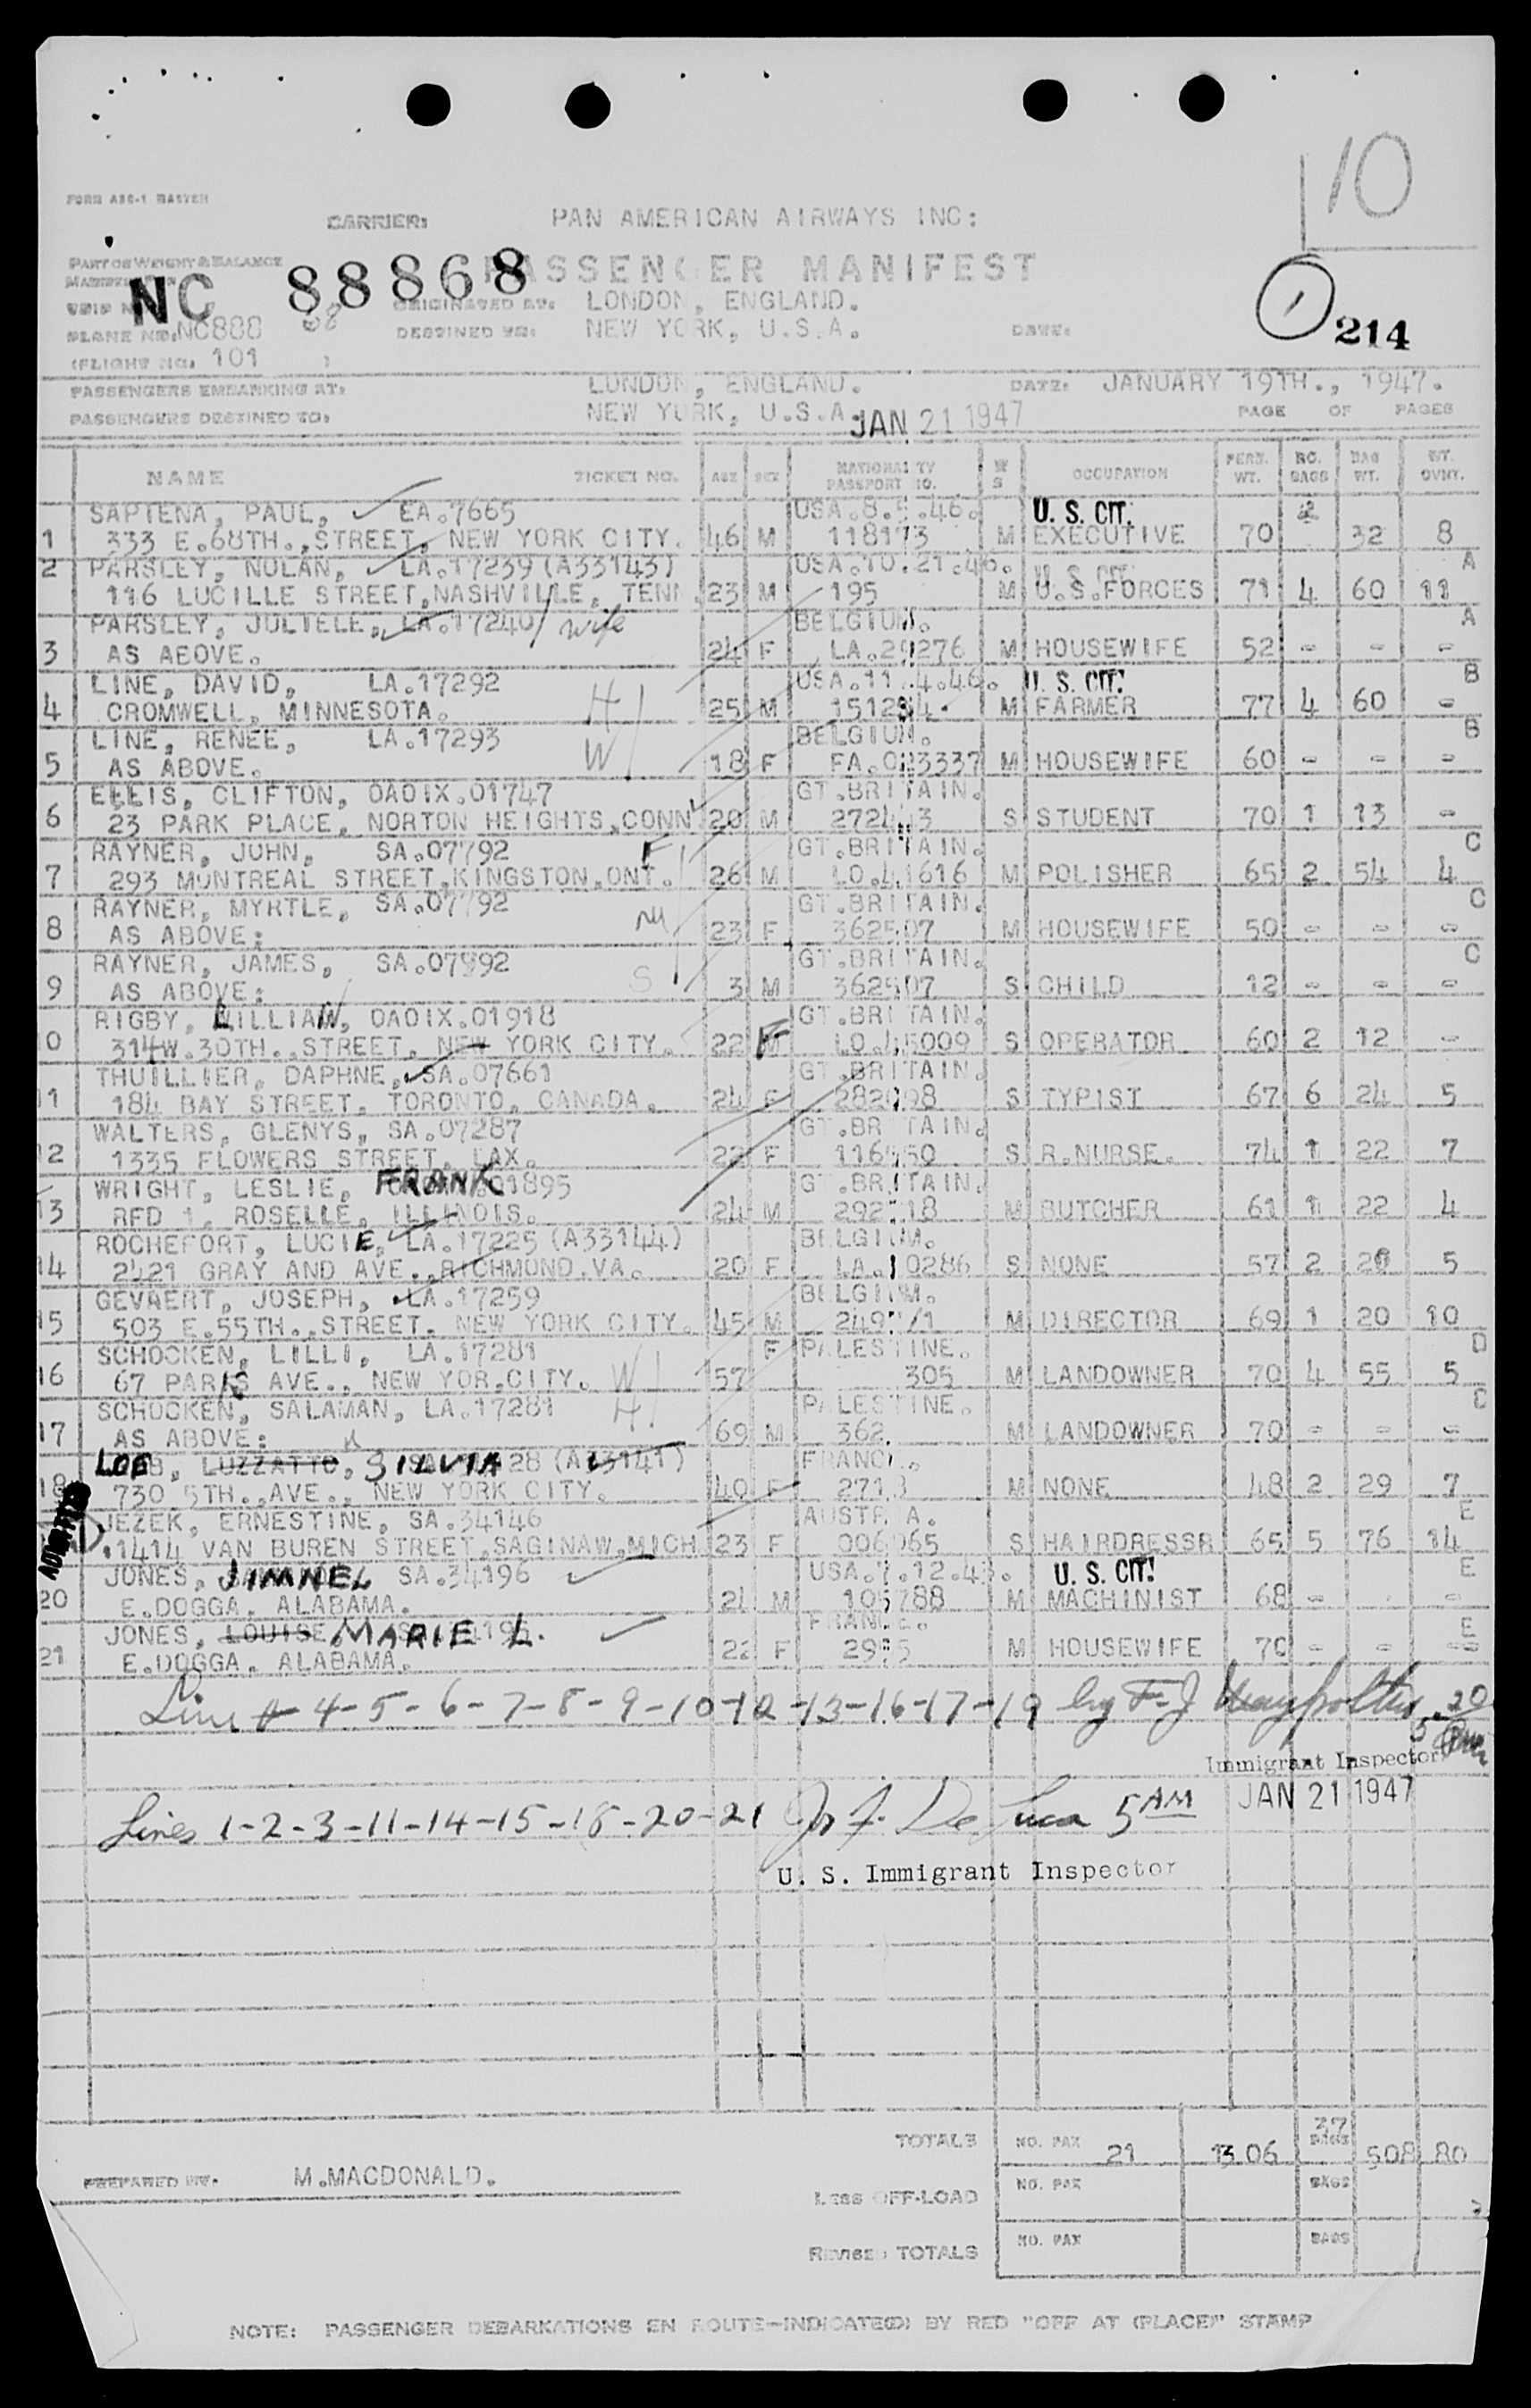 10
FORM ABC-1 MASTER
CARRIER: PAN AMERICAN AIRWAYS INC:
PART OF WEIGHT & BALANCE
PASSENGER MANIFEST
NC 88868
ORIGINATED AT: LONDON, ENGLAND.
1
PLANE NO. NC888 68 DESTINED TO: NEW YORK, U.S.A. DATE:
214
(FLIGHT NO. 101 )
PASSENGERS EMBARKING AT: LONDON, ENGLAND. DATE: JANUARY 19TH., 1947.
PASSENGERS DESTINED TO: NEW YORK, U.S.A. JAN 21 1947 PAGE OF PAGES
NAME TICKET NO. AGE SEX NATIONALITY PASSPORT NO. M S OCCUPATION PERS. WT. NO. BAGS BAG WT. WT. OVNT.
SAPIENA, PAUL, EA.7665 U. S. CIT. 2
1 333 E.68TH.,STREET, NEW YORK CITY. 46 M 118173 M EXECUTIVE 70 32 8
2 PARSLEY, NOLAN, LA.17239 (A33143) USA.10.21.46. U. S. CIT. A
116 LUCILLE STREET,NASHVILLE, TENN 23 M 195 M U.S.FORCES 71 4 60 11
PARSLEY, JULIELE, LA.17240 wife BELGIUM. A
3 AS ABOVE. 24 F LA.29276 M HOUSEWIFE 52 - - -
LINE, DAVID, LA.17292 H USA.11.4.46. U. S. CIT. B
4 CROMWELL, MINNESOTA. 25 M M FARMER 77 4 60 -
LINE, RENEE, LA.17293 W BELGIUM. B
5 AS ABOVE. 18 F FA.023337 M HOUSEWIFE 60 - - -
ELLIS, CLIFTON, OAOIX.01747 GT.BRITAIN.
6 23 PARK PLACE, NORTON HEIGHTS,CONN 20 M S STUDENT 70 1 13 -
RAYNER, JOHN, SA.07792 F GT.BRITAIN. C
7 293 MONTREAL STREET,KINGSTON,ONT. 26 M LO.41616 M POLISHER 65 2 54 4
RAYNER, MYRTLE, SA.07792 M GT.BRITAIN. C
8 AS ABOVE: 23 F 362507 M HOUSEWIFE 50 - - -
RAYNER, JAMES, SA.07992 S GT.BRITAIN. C
9 AS ABOVE: 3 M 362507 S CHILD 12 - - -
RIGBY, LILLIAN, OAOIX.01918 GT.BRITAIN.
10 314W.30TH.,STREET, NEW YORK CITY. 22 F LO.45009 S OPERATOR 60 2 12 -
THUILLIER, DAPHNE, SA.07661 GT.BRITAIN.
11 184 BAY STREET, TORONTO, CANADA. 24 F S TYPIST 67 6 24 5
WALTERS, GLENYS, SA.07287 GT.BRITAIN.
12 1335 FLOWERS STREET, LAX. 22 F S R.NURSE. 74 1 22 7
WRIGHT, LESLIE, FRANK .01895 GT.BRITAIN.
13 RFD 1, ROSELLE, ILLINOIS. 24 M M BUTCHER 61 1 22 4
ROCHEFORT, LUCIE, LA.17225 (A33144) BELGIUM.
14 2421 GRAY AND AVE.,RICHMOND.VA. 20 F S NONE 57 2 5
GEVAERT, JOSEPH, LA.17259 BELGIUM.
15 503 E.55TH.,STREET. NEW YORK CITY. 45 M M DIRECTOR 69 1 20 10
SCHOCKEN, LILLI, LA.17281 W F PALESTINE. D
16 67 PARK AVE., NEW YOR.CITY. 57 305 M LANDOWNER 70 4 55 5
SCHOCKEN, SALAMAN, LA.17281 H PALESTINE. D
17 AS ABOVE: 69 M 362. M LANDOWNER 70 - - -
LOEB, LUZZATTO, SILVIA 28 (A33141) FRANCE.
18 730 5TH.,AVE., NEW YORK CITY. 40 F M NONE 48 2 29 7
ADMITTED JEZEK, ERNESTINE, SA.34146 AUSTRIA. E
1414 VAN BUREN STREET,SAGINAW,MICH 23 F 006065 S HAIRDRESSR 65 5 76 14
JONES, JIMNEL SA.34196 U. S. CIT. E
20 E.DOGGA. ALABAMA. M 105788 M MACHINIST 68 - - -
JONES, LOUISE MARIE L. FRANCE. E
21 E.DOGGA. ALABAMA. 22 F M HOUSEWIFE 70 - - -
Line # 4-5-6-7-8-9-10-12-13-16-17-19 by F-J
Immigrant Inspector
JAN 21 1947
Lines 1-2-3-11-14-15-18-20-21 De Luca 5 AM
U. S. Immigrant Inspector
TOTALS NO. PAX 21 1306 37 BAGS 508 80
PREPARED BY. M.MACDONALD.
LESS OFF-LOAD NO. PAX BAGS
REVISED TOTALS NO. PAX BAGS
NOTE: PASSENGER DEBARKATIONS EN ROUTE-INDICATE(D) BY RED "OFF AT (PLACE)" STAMP